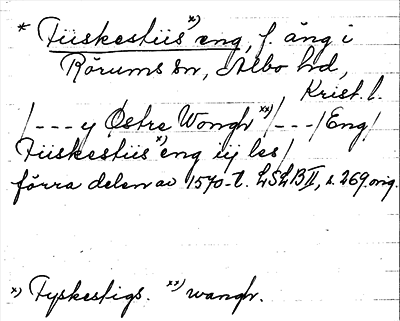 * Tiiskestiis*) eng, f. äng i
Rörums sn, Albo hd,
Krist. l.
/--- y Østre Wongh **)/---/Eng/
Tiiskestiis*) eng iij les/
förra delen av 1570-t. LSLB II, s. 269. orig.
*) Tyskestigs. **) wangh.